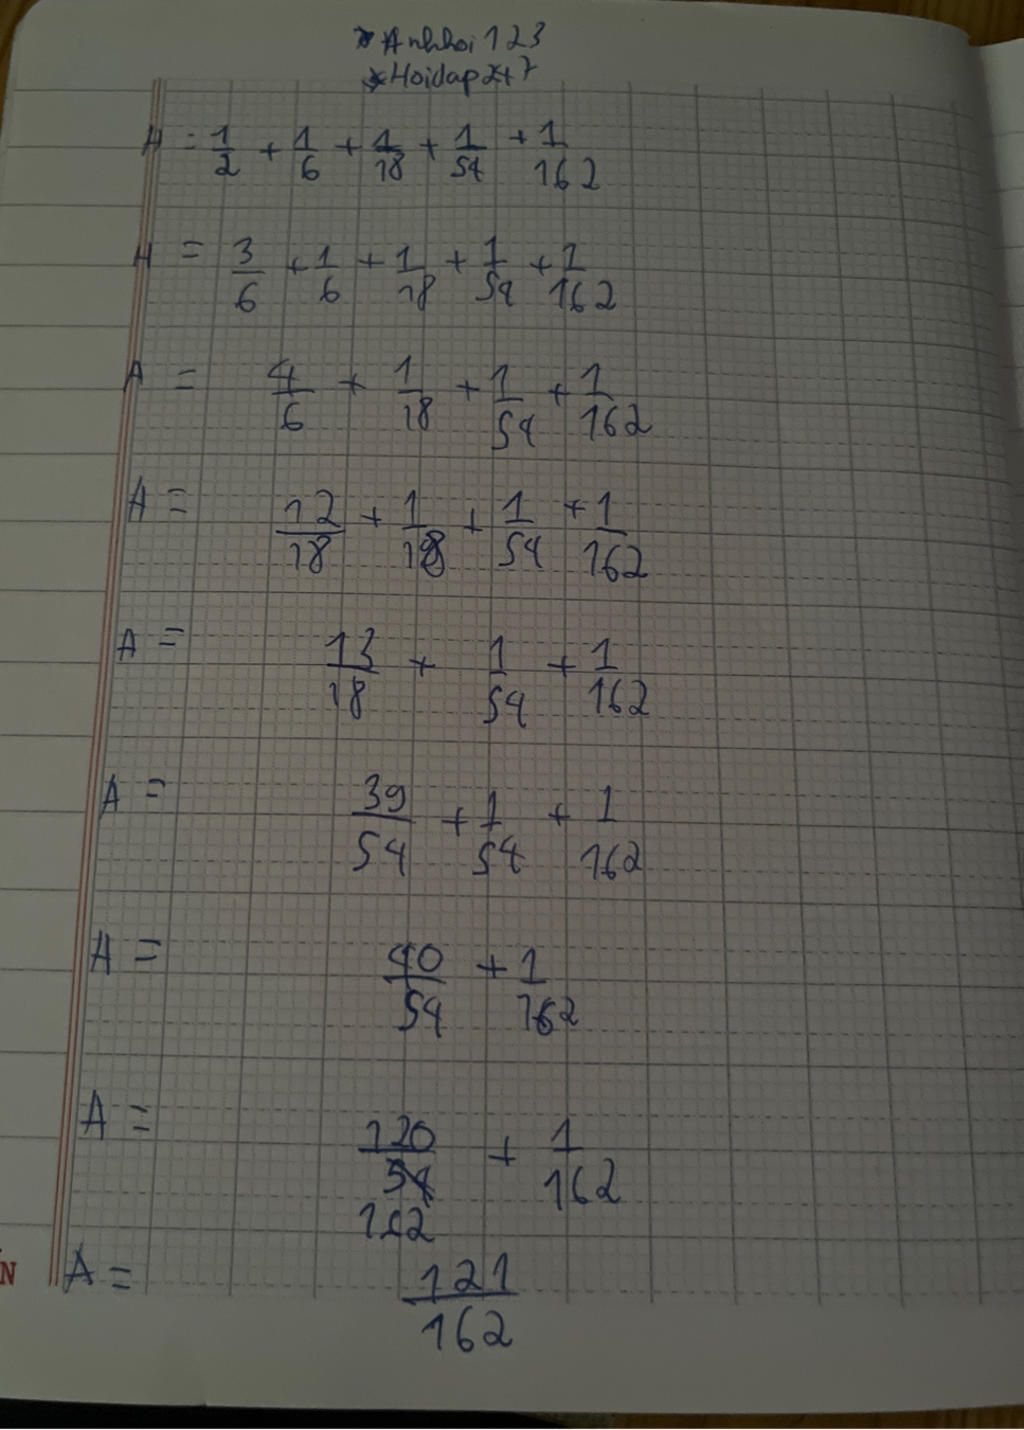 * Anhhoi 123
* Hoidap247
A = 1/2 + 1/6 + 1/18 + 1/54 + 1/162
A = 3/6 + 1/6 + 1/18 + 1/54 + 1/162
A = 4/6 + 1/18 + 1/54 + 1/162
A = 12/18 + 1/18 + 1/54 + 1/162
A = 13/18 + 1/54 + 1/162
A = 39/54 + 1/54 + 1/162
A = 40/54 + 1/162
A = 120/162 + 1/162
A = 121/162